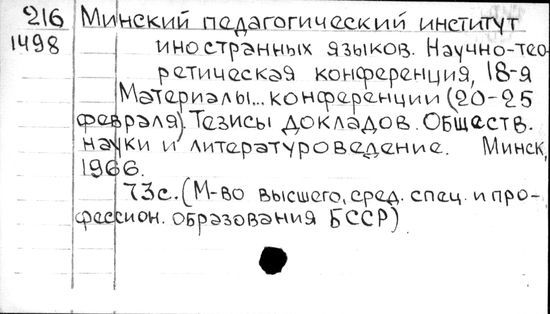 216 Минский педагогический институт
1498 иностранных языков. Научно-тео-
ретическая конференция, 18-я
Материалы... конференции (20-25
февраля). Тезисы докладов. Обществ.
науки и литературоведение. Минск,
1966.
73с. (М-во высшего, сред. спец. и про-
фессион. образования БССР)